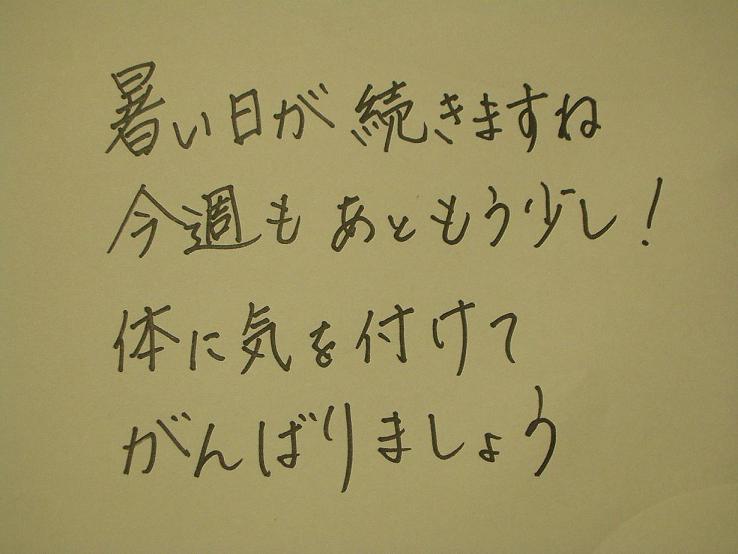 暑い日が続きますね
今週もあともう少し！
体に気を付けて
がんばりましょう